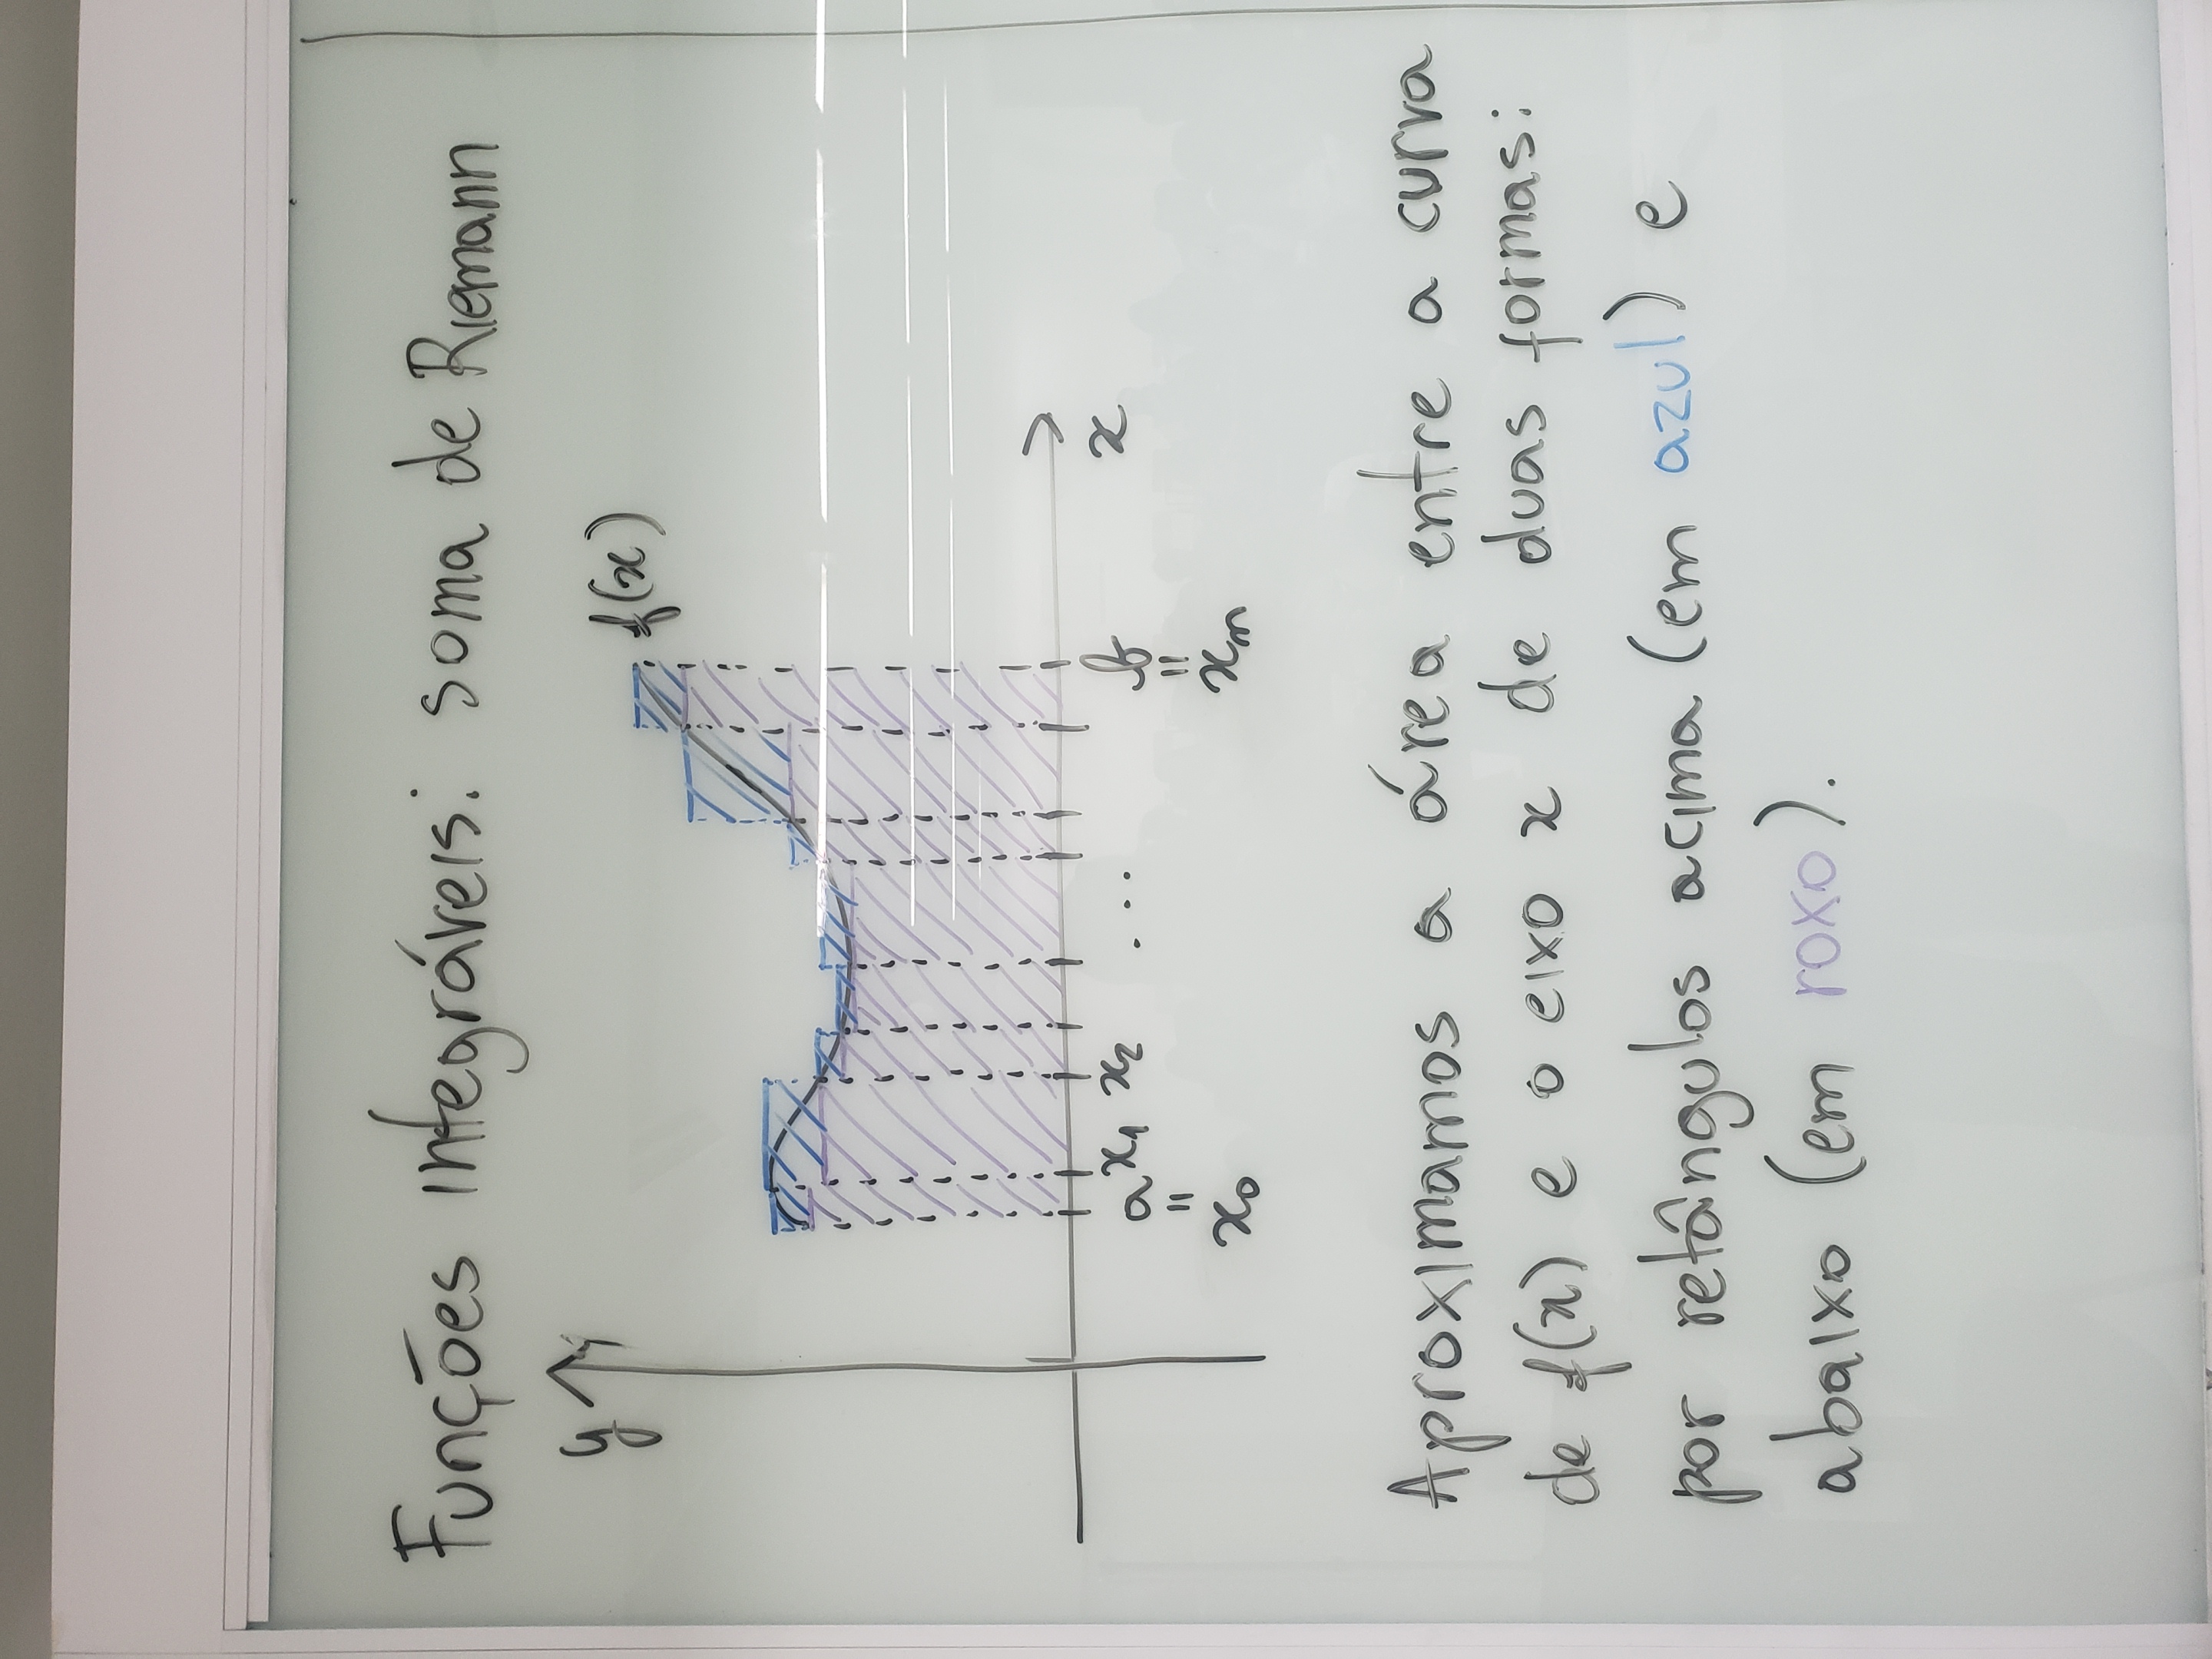 Funções integráveis: soma de Riemann
y
f(x)
a x₁ x₂ ... b x
= =
x₀ xₙ
Aproximamos a área entre a curva
de f(x) e o eixo x de duas formas:
por retângulos acima (em azul) e
abaixo (em roxo).